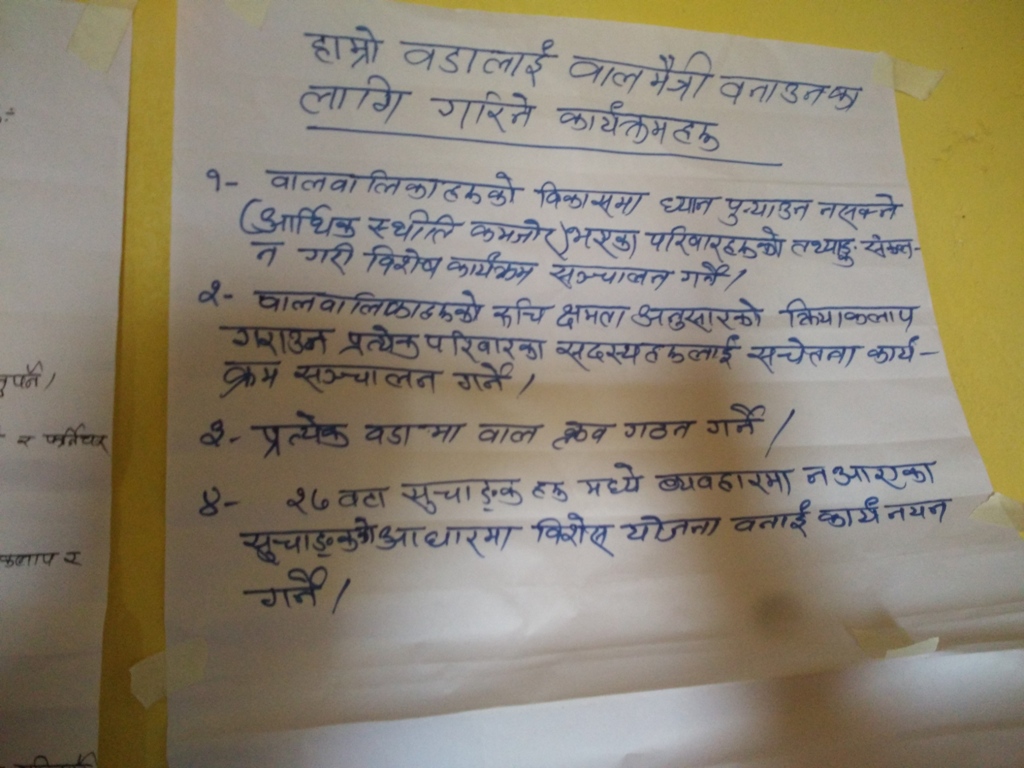 हाम्रो वडालाई वालमैत्री वनाउनका
लागि गरिने कार्यक्रमहरू
१- वालवालिकाहरूको विकासमा ध्यान पुऱ्याउन नसक्ने
(आर्थिक स्थीति कमजोर) भएका परिवारहरूको तथ्याङ्क संकल-
न गरी विशेष कार्यक्रम सञ्चालन गर्ने/
२- वालवालिकाहरूको रूचि क्षमता अनुसारको क्रियाकलाप
गराउन प्रत्येक परिवारका सदस्यहरूलाई सचेतना कार्य-
क्रम सञ्चालन गर्ने/
३- प्रत्येक वडा-मा वाल क्लव गठन गर्ने/
४- २७ वटा सुचाङ्कहरू मध्ये व्यवहारमा नआएका
सुचाङ्कको आधारमा विशेष योजना वनाई कार्यनयन
गर्ने/
कलाप र